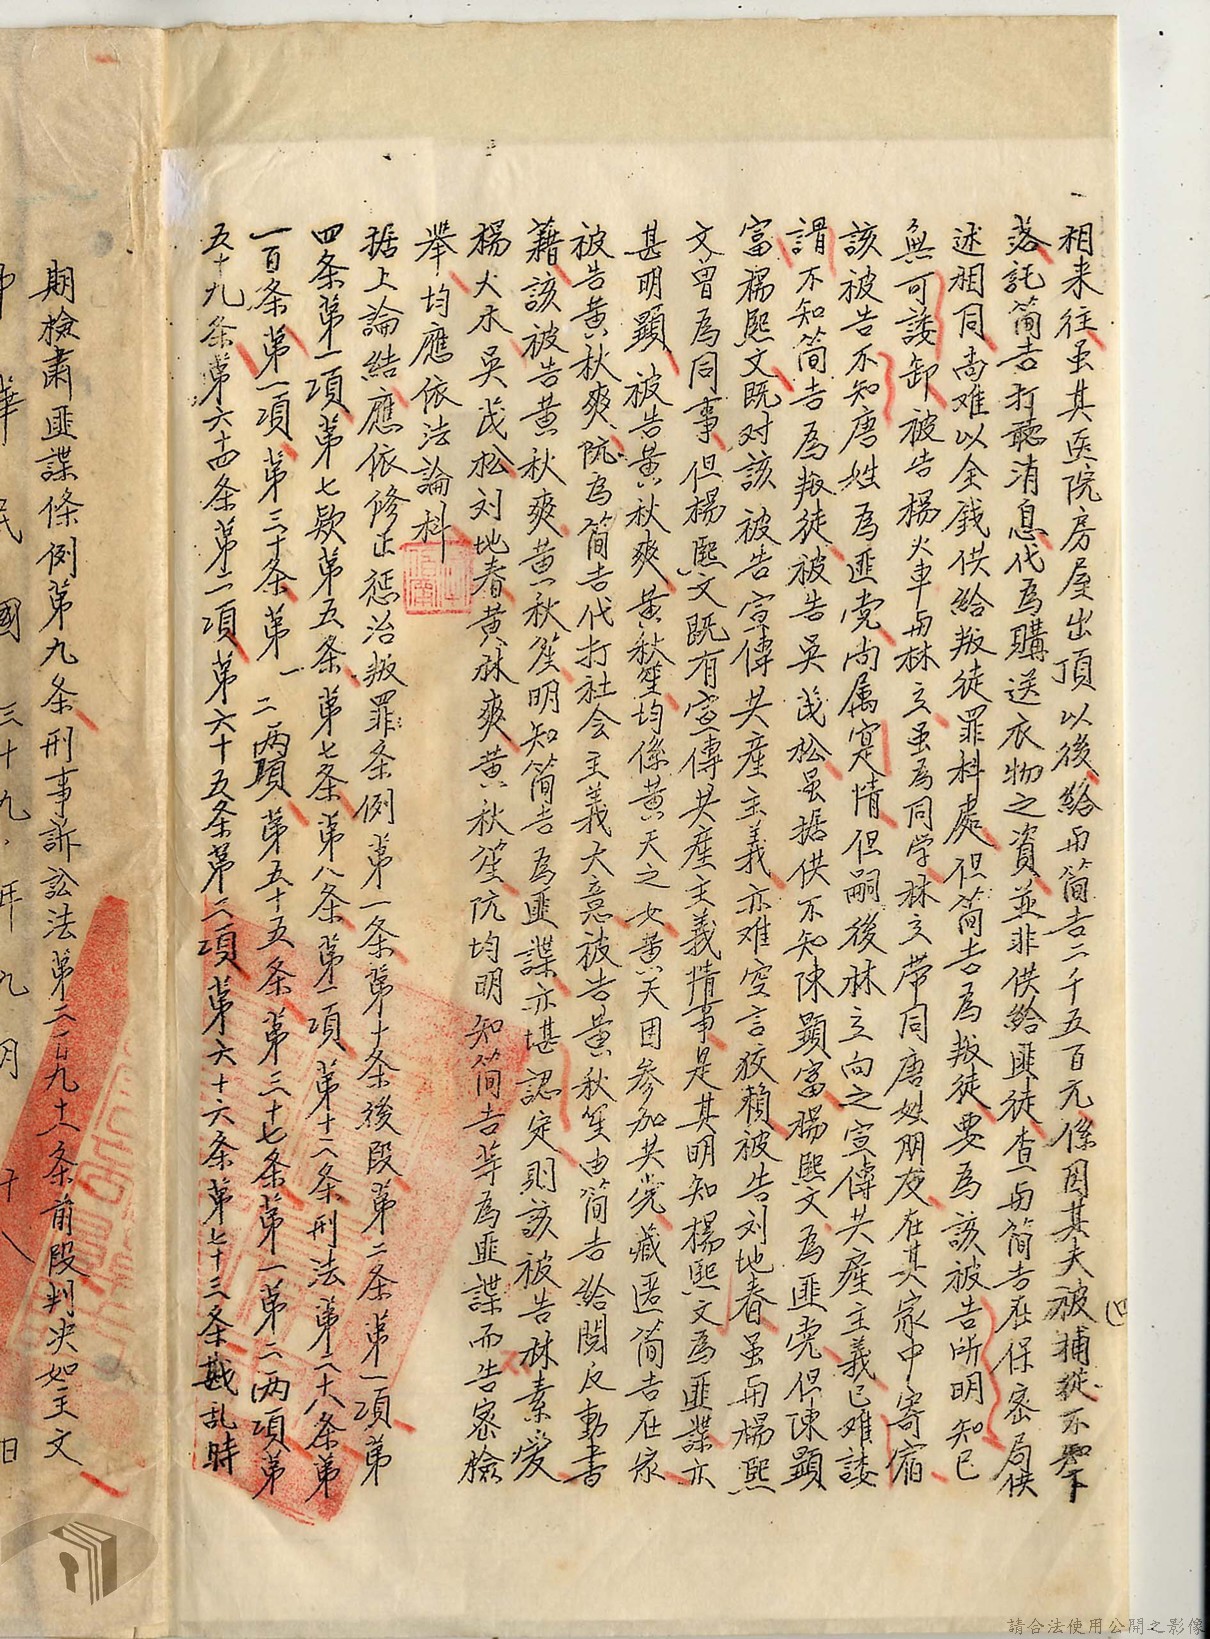 相来往虽其医院房屋出頂以後給与简吉二千五百元係因其夫被捕後不知下
落託简吉打聽消息代為購送衣物之資並非供給匪徒查与简吉在保密局供
述相同尚难以金錢供給叛徒罪科處但简吉為叛徒要為該被告所明知已
無可諉卸被告楊火車与林立虽為同学林立帶同唐姓朋友在其家中寄宿
該被告不知唐姓為匪党尚属寔情但嗣後林立向之宣傳共產主義已难諉
謂不知简吉為叛徒被告吴茂松虽据供不知陳顕富楊熙文為匪党但陳顕
富楊熙文既对該被告宣傳共産主義亦难空言狡賴被告刘地春虽与楊熙
文曾為同事但楊熙文既有宣傳共産主義情事是其明知楊熙文為匪諜亦
甚明顕被告黄秋爽黄秋笙均係黄天之女黄天因参加共党藏匿简吉在家
被告黄秋爽阮為简吉代打社会主義大意被告黄秋笙由简吉給閲反動書
籍該被告黄秋爽黄秋笙明知简吉為匪諜亦堪認定則該被告林素愛
楊火木吴茂松刘地春黄秋爽黄秋笙阮均明知简吉等為匪諜而告密檢
舉均應依法論科
据上論結應依修正惩治叛罪条例第一条第十条後段第二条第一項第
四条第一項第七款第五条第七条第八条第二項第十二条刑法第二十八条第
一百条第一項第三十条第一二兩項第五十五条第三十七条第一第二两項第
五十九条第六十四条第二項第六十五条第二項第六十六条第七十三条戡乱時
期檢肅匪諜條例第九条刑事訴訟法第二百九十一条前段判决如主文
中華民國三十九年九月十八日
(四
請合法使用公開之影像